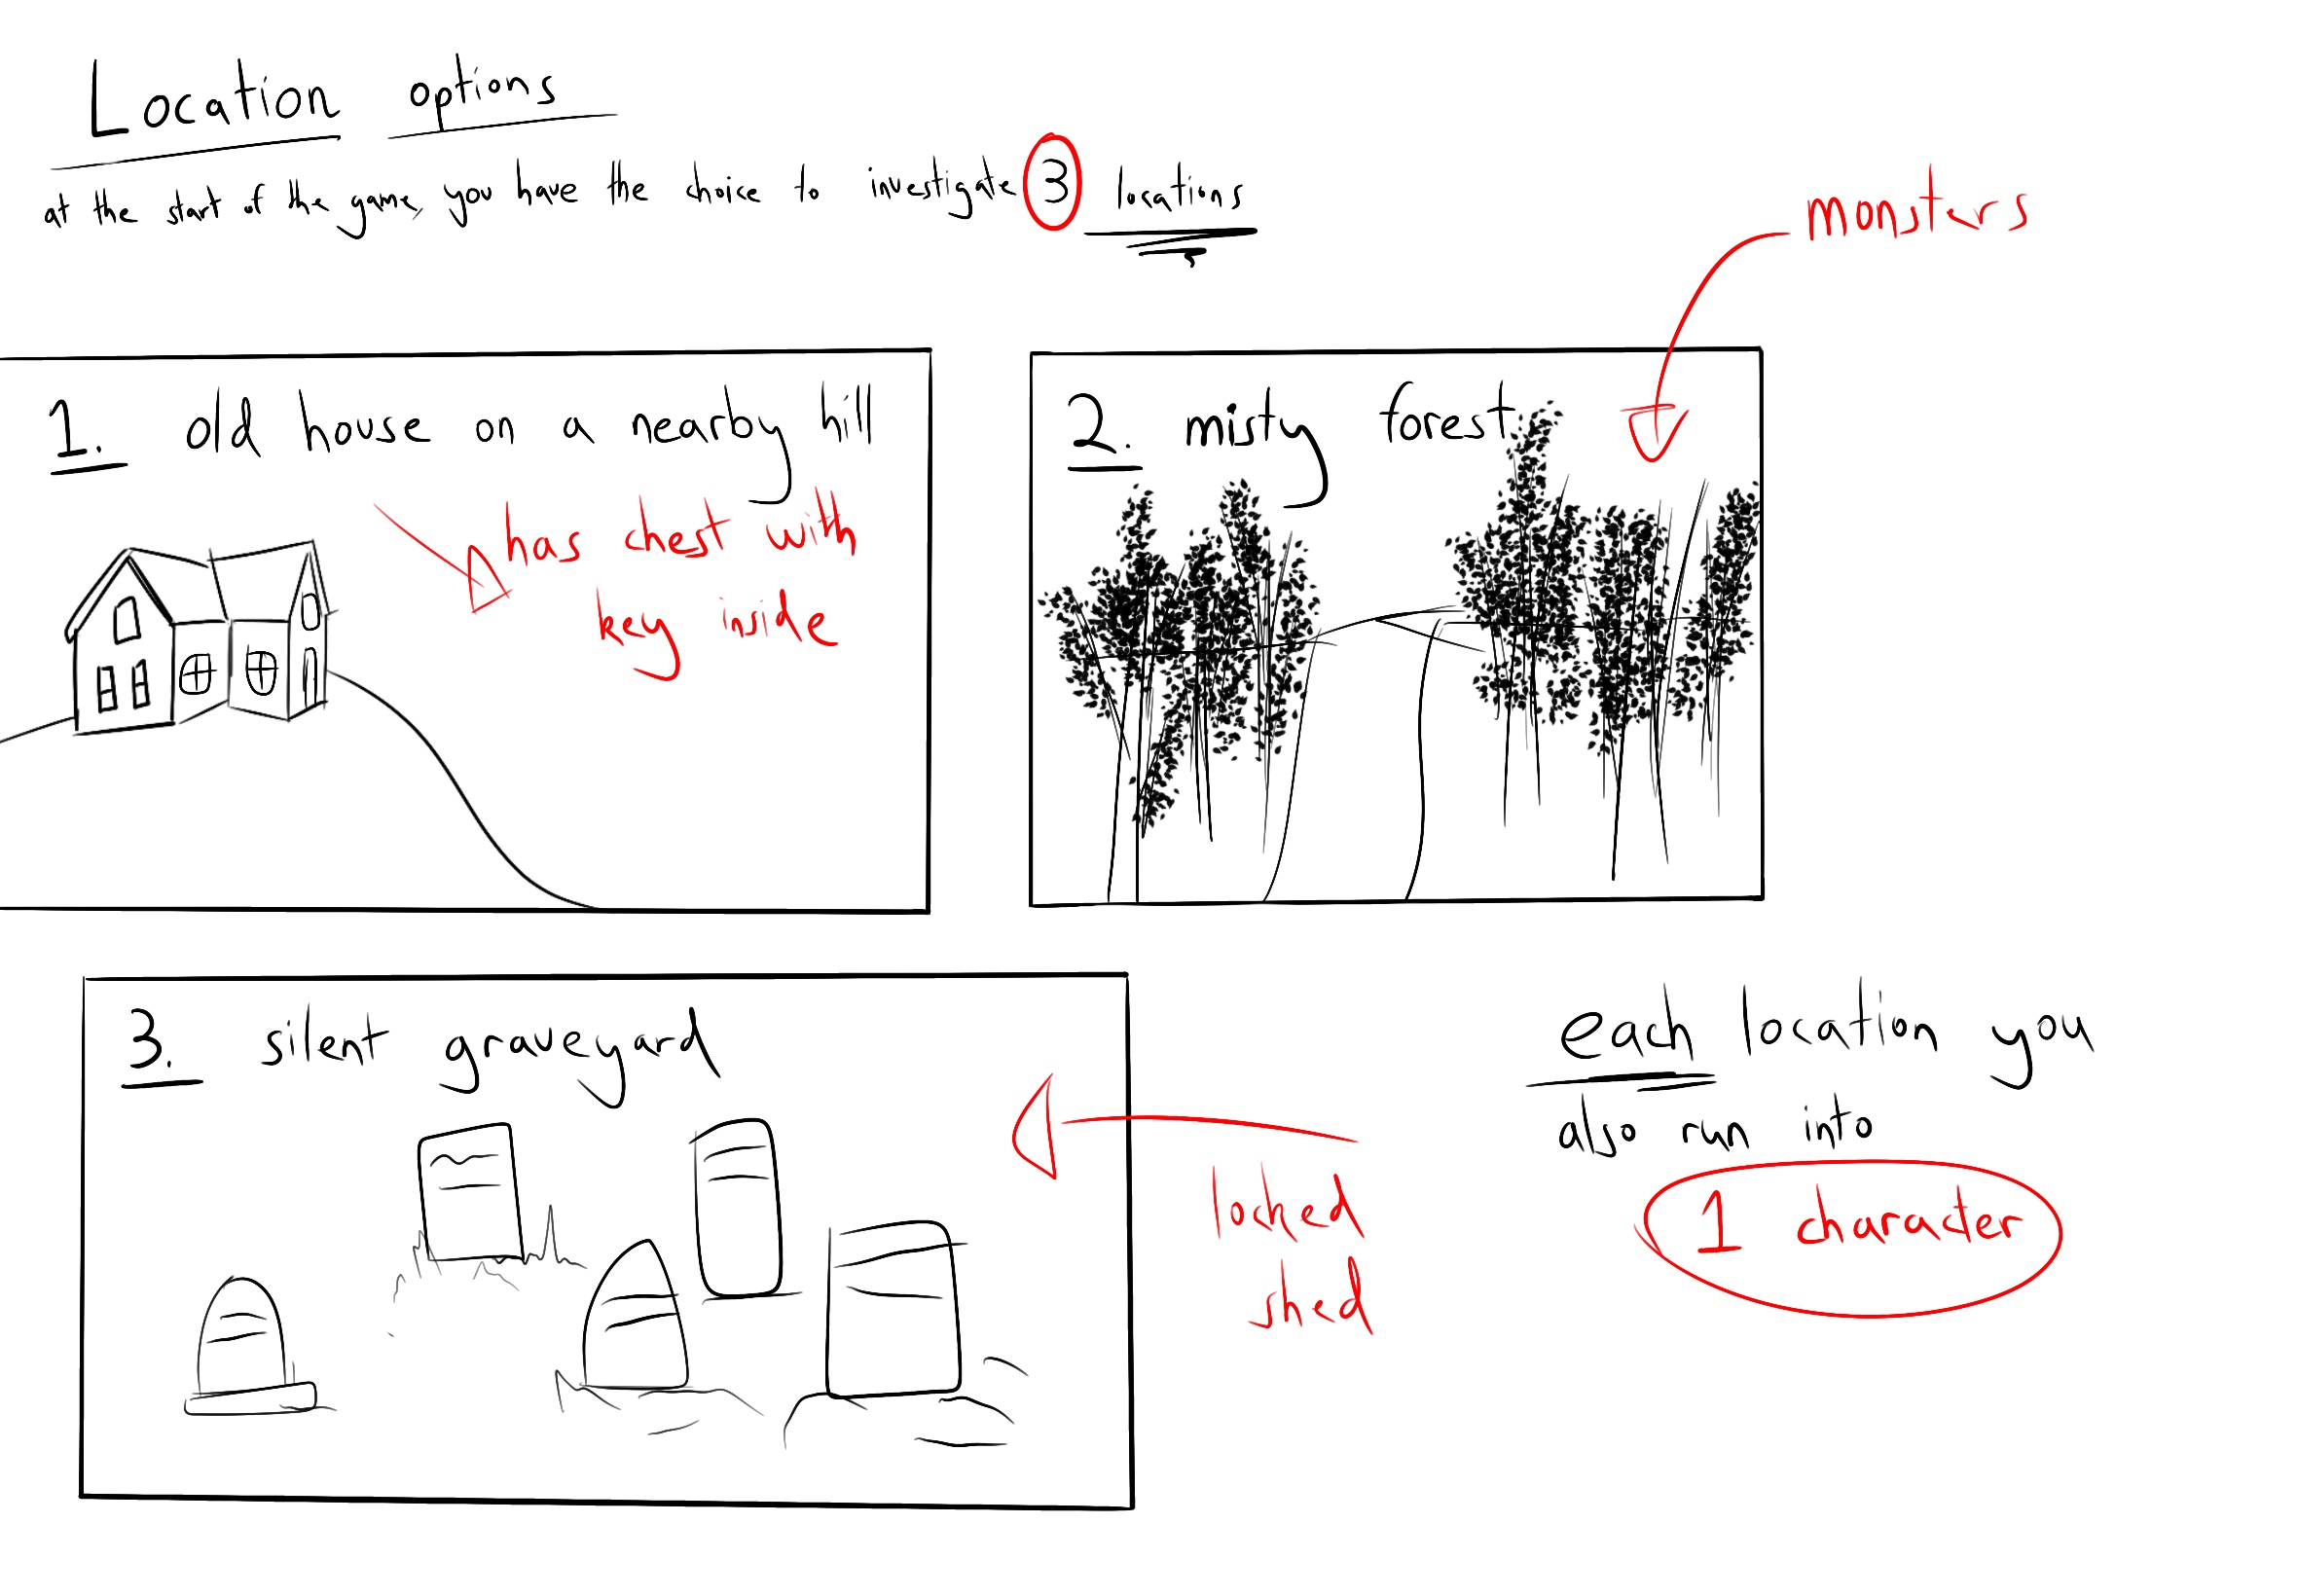 Location options
at the start of the game, you have the choice to investigate 3 locations
monsters
1. old house on a nearby hill
has chest with
key inside
2. misty forest
3. silent graveyard
locked
shed
each location you
also run into
1 character